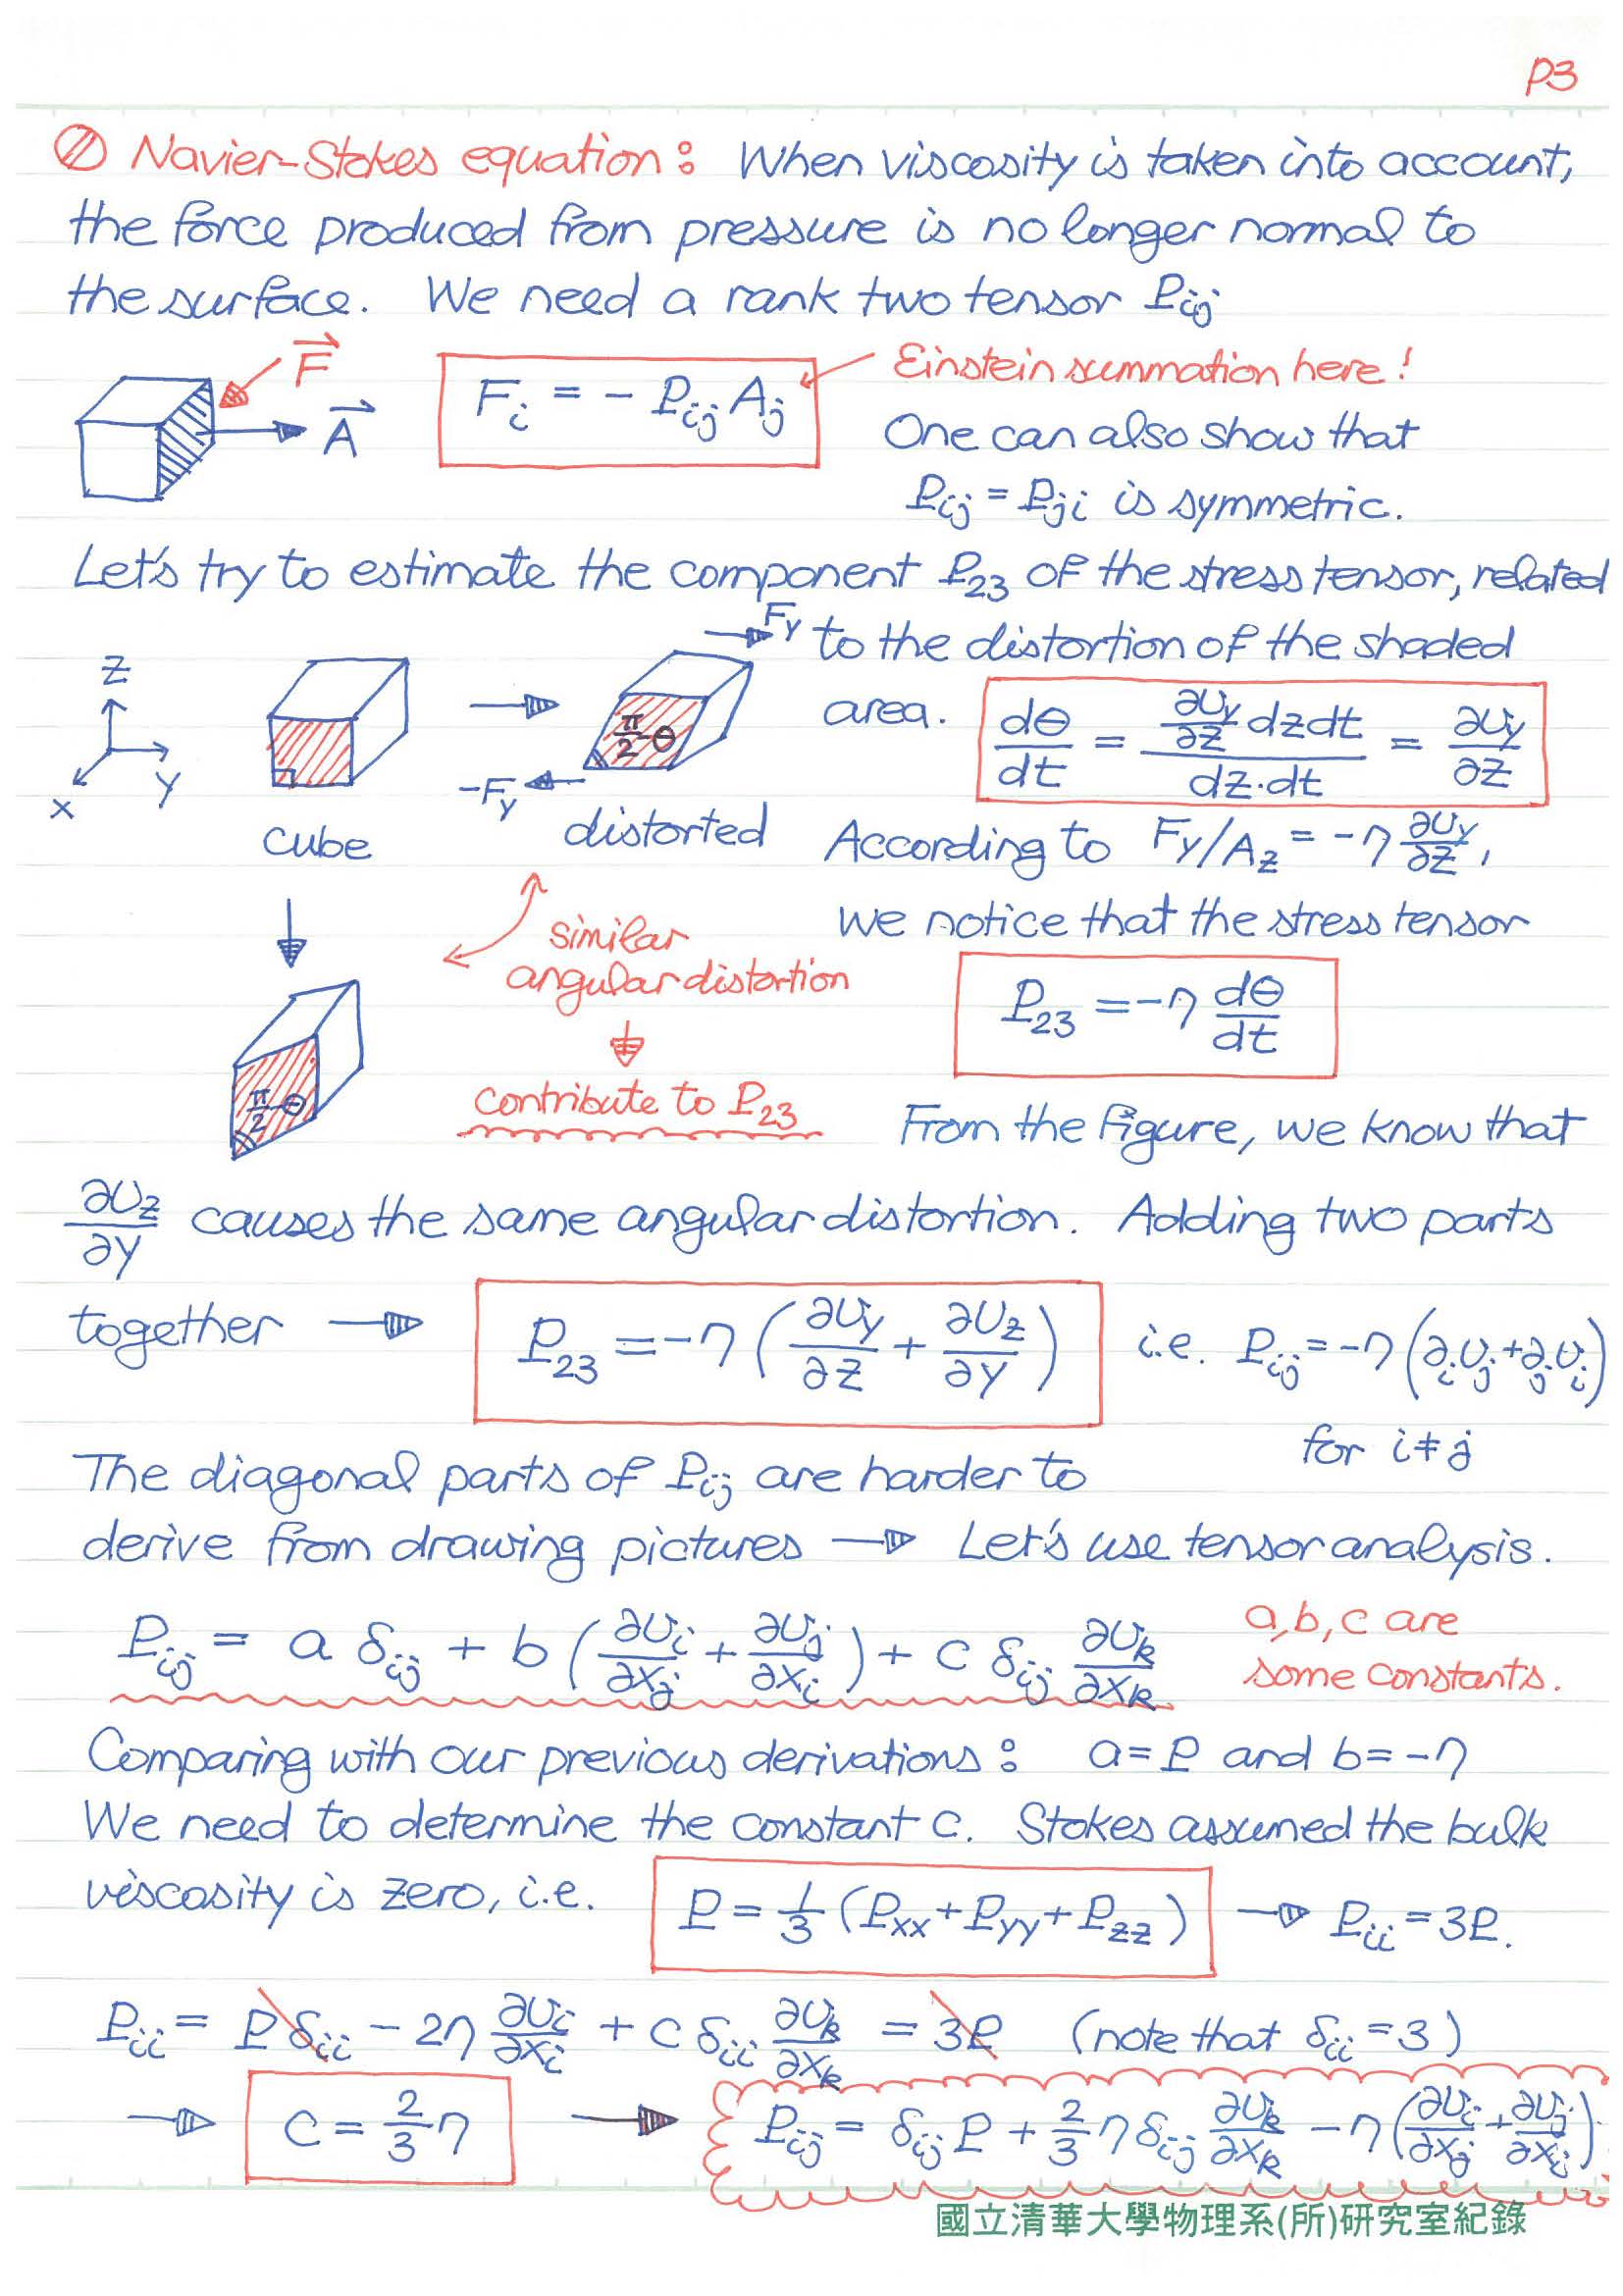 P3
Navier-Stokes equation: When viscosity is taken into account,
the force produced from pressure is no longer normal to
the surface. We need a rank two tensor Pij
F
A
Fi = - Pij Aj
Einstein summation here!
One can also show that
Pij = Pji is symmetric.
Let's try to estimate the component P23 of the stress tensor, related
to the distortion of the shaded
area. dθ/dt = (∂Uy/∂z dzdt)/(dz·dt) = ∂Uy/∂z
Z
Y
X
cube
π/2-θ
Fy
-Fy
distorted
According to Fy/Az = -η ∂Uy/∂z,
we notice that the stress tensor
P23 = -η dθ/dt
similar
angular distortion
contribute to P23
π/2-θ
From the figure, we know that
∂Uz/∂y causes the same angular distortion. Adding two parts
together → P23 = -η (∂Uy/∂z + ∂Uz/∂y) i.e. Pij = -η (∂iUj + ∂jUi)
for i≠j
The diagonal parts of Pij are harder to
derive from drawing pictures → Let's use tensor analysis.
Pij = a δij + b (∂Ui/∂xj + ∂Uj/∂xi) + c δij ∂Uk/∂xk
a, b, c are
some constants.
Comparing with our previous derivations: a = P and b = -η
We need to determine the constant c. Stokes assumed the bulk
viscosity is zero, i.e. P = 1/3 (Pxx + Pyy + Pzz) → Pii = 3P.
Pii = P δii - 2η ∂Ui/∂xi + c δii ∂Uk/∂xk = 3P (note that δii = 3)
→ c = 2/3 η → Pij = δij P + 2/3 η δij ∂Uk/∂xk - η (∂Ui/∂xj + ∂Uj/∂xi)
國立清華大學物理系(所)研究室紀錄